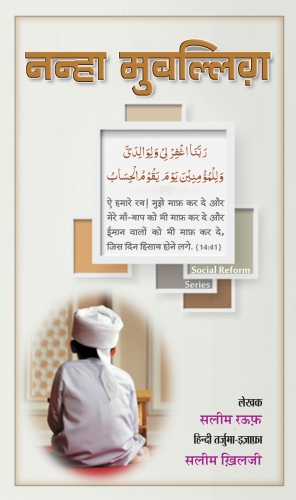 नन्हा मुबल्लिग़
رَبَّنَا اغْفِرْ لِيْ وَلِوَالِدَيَّ
وَلِلْمُؤْمِنِيْنَ يَوْمَ يَقُوْمُ الْحِسَابُ
ऐ हमारे रब! मुझे माफ़ कर दे और
मेरे माँ-बाप को भी माफ़ कर दे और
ईमान वालों को भी माफ़ कर दे,
जिस दिन हिसाब होने लगे. (14:41)
Social Reform
Series
लेखक
सलीम रऊफ़
हिन्दी तर्जुमा-इज़ाफ़ा
सलीम ख़िलजी